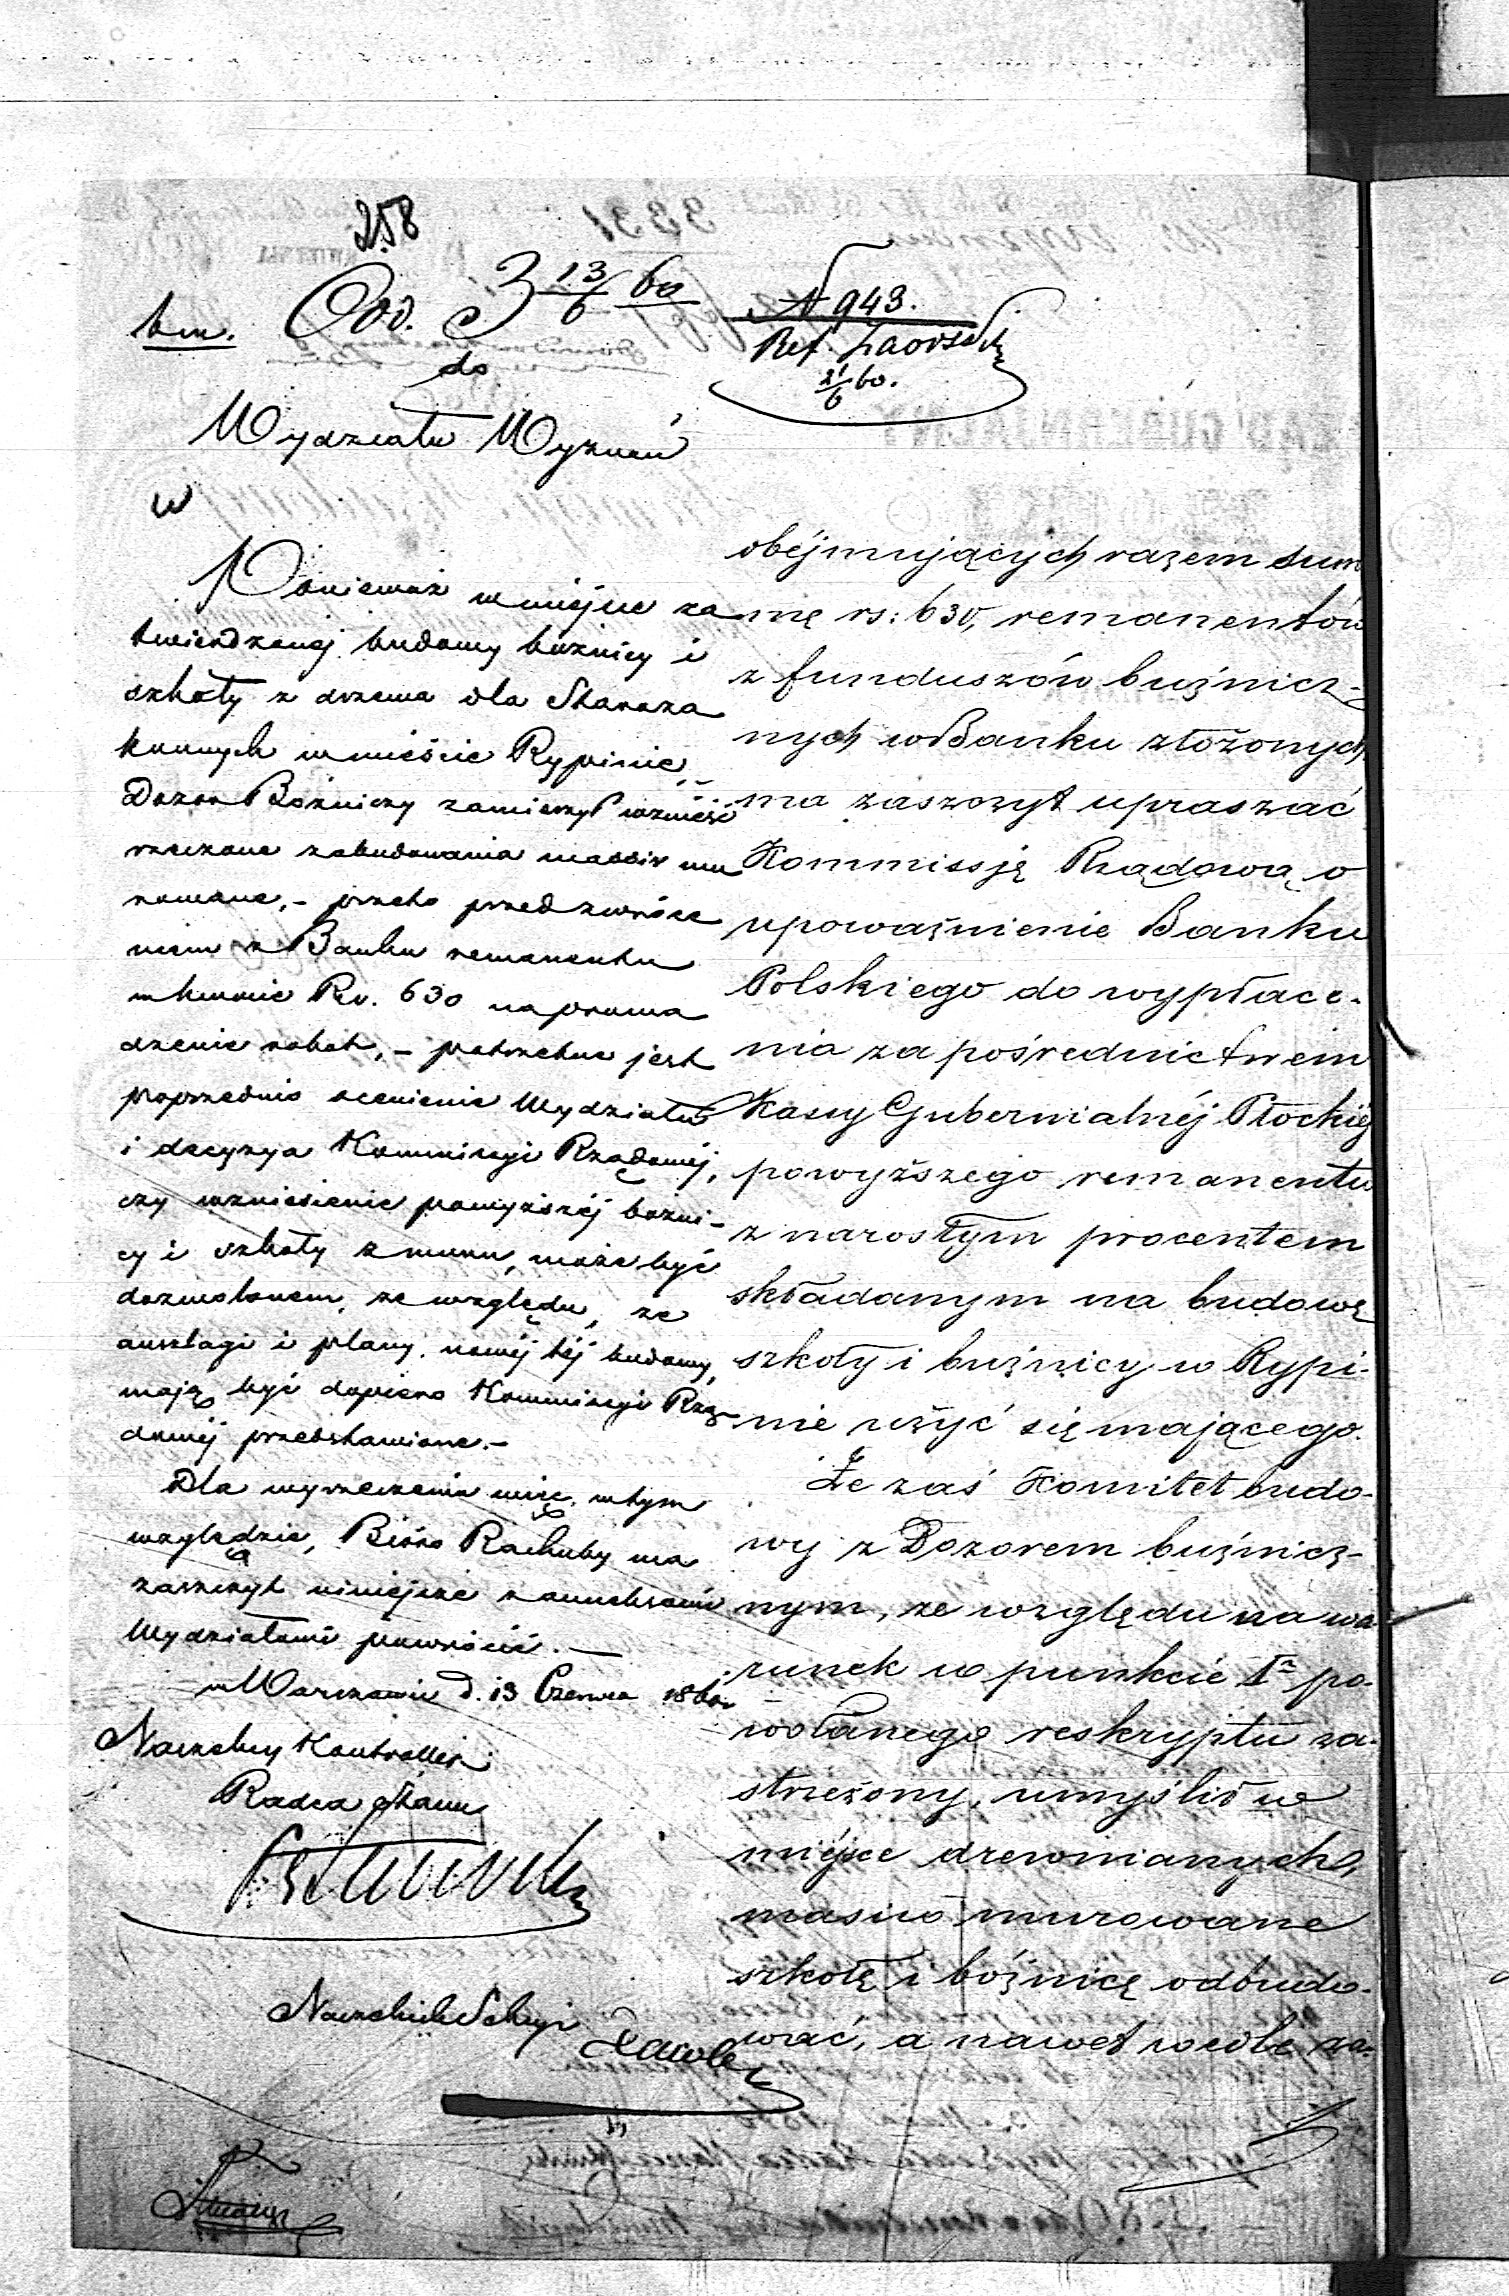 258
Odd. 3 13/6 60
bm.
do
Wydziału Wyznań
w
N 943.
Ref. Zaorski
21/6 60.
Ponieważ w miejsce za
twierdzonej budowy bożnicy i
szkoły z drzewa dla Staroza
konnych w mieście Rypinie,
Dozór Bożniczy zamierzył wznieść
rzeczone zabudowania massiv mu
rowane,- przeto przed zwróce
niem z Banku remanentu
w kwocie Rs. 630 na prowa
dzenie robot,- potrzebne jest
poprzednio ocenienie Wydziału
i decyzya Kommissyi Rządowéj,
czy wzniesienie powyższéj bożni-
cy i szkoły z muru, może być
dozwolonem, ze względu, że
anszlagi i plany nowéj téj budowy,
mają być dopiero Kommissyi Rzą
dowéj przedstawione.-
Dla wyrzeczenia więc w tym
względzie, Bióro Rachuby ma
zaszczyt niniejsze z annexami
Wydziałowi powrócić.-
w Warszawie d. 13 Czerwca 1860
Naczelny Kontroller
Radca Stanu
Naczelnik Sekcyi
obéjmujących razem sum
mę rs: 630, remanentów
z funduszów buźnicz-
nych w Banku złożonych
ma zaszczyt upraszać
Kommissję Rządową o
upoważnienie Banku
Polskiego do wypłace-
nia za pośrednictwem
Kassy Gubernialnéj Płockiéj
powyższego remanentu
z narosłym procentem
składanym na budowę
szkoły i buźnicy w Rypi-
nie użyć się mającego.
Że zaś Komitet budo-
wy z Dozorem buźnicz-
nym, ze względu na wa
runek w punkcie 1m po-
wołanego reskryptu za-
strzeżony, umyślił w
miéjsce drewnianych,
masiwo murowane
szkołę i bóźnicę odbudo-
wać, a nawet wedle za-